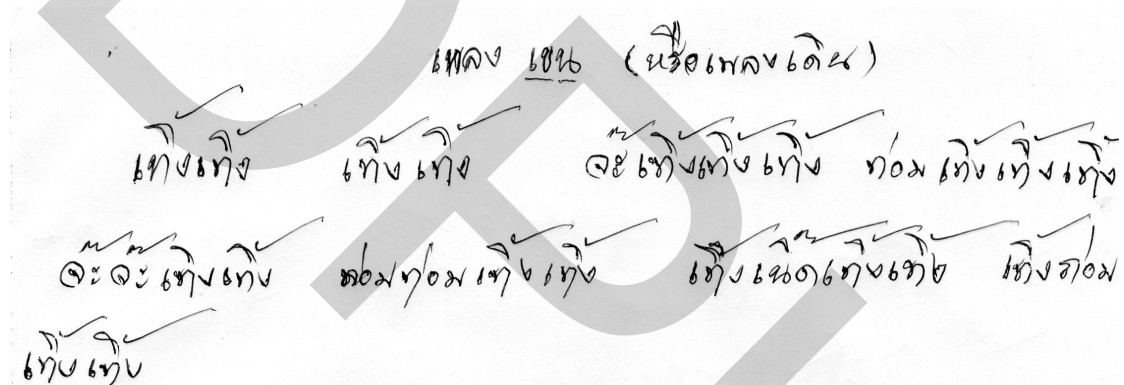 เพลง เชน (หรือเพลงเดิน)
เทิ้งเทิ้ง เทิ้งเทิ้ง จ๊ะเทิ้งเทิ้งเทิ้ง ท่อมเทิ้งเทิ้งเทิ้ง
จ๊ะจ๊ะเทิ้งเทิ้ง ท่อมท่อมเทิ้งเทิ้ง เทิ้งเน๊ดเทิ้งเทิ้ง เทิ้งท่อม
เทิ้งเทิ้ง